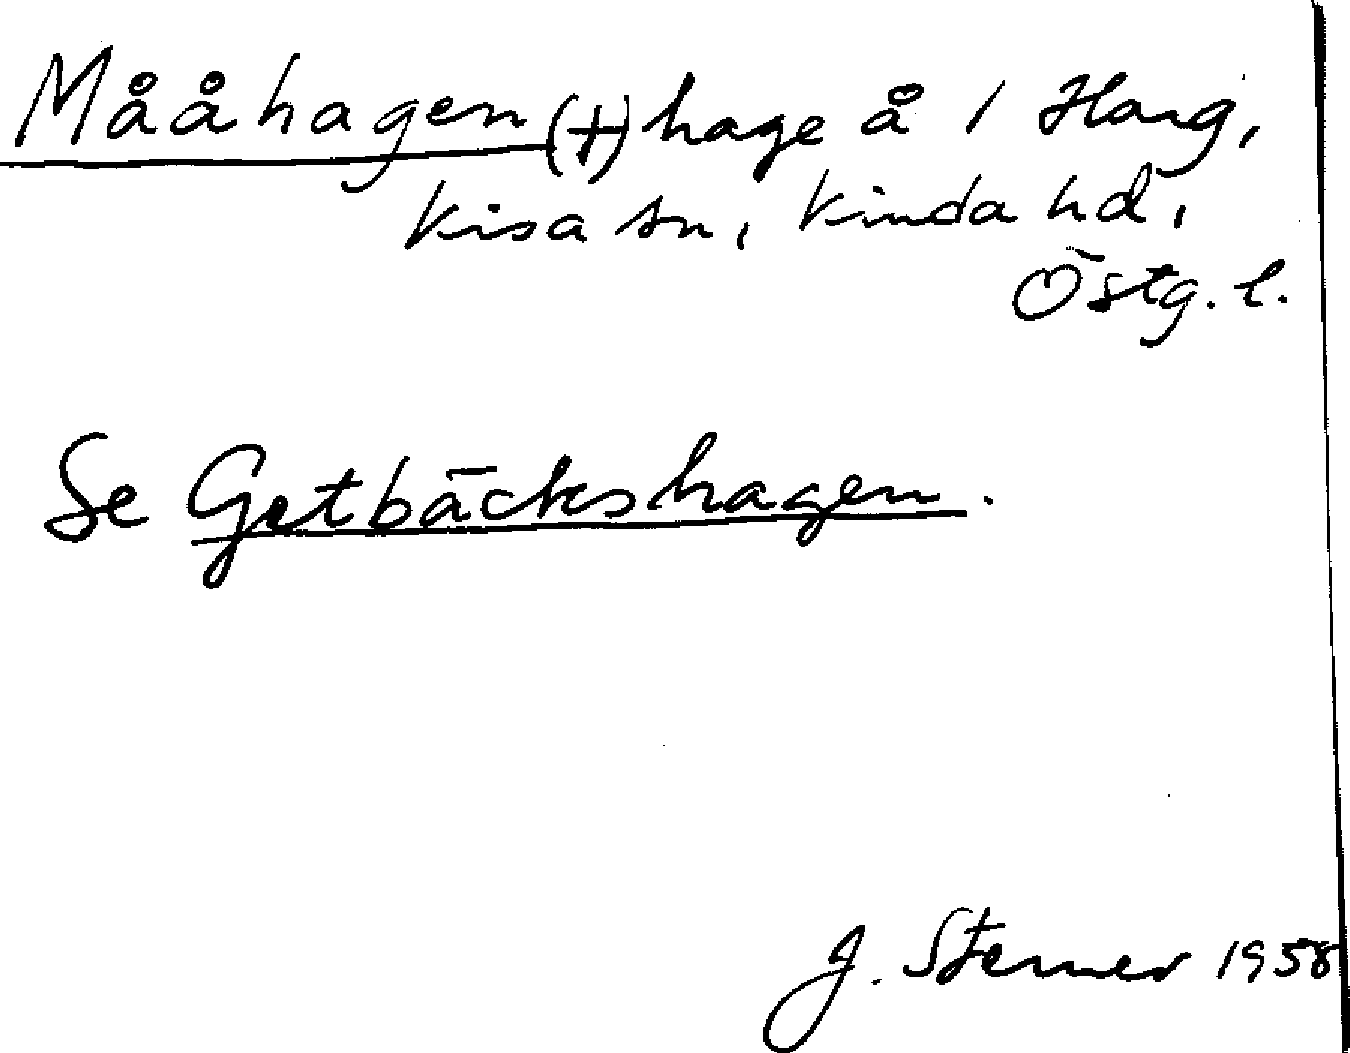 Mååhagen (+) hage å 1 Harg,
Kisa sn, Kinda hd,
Östg. l.
Se Getbäckshagen.
J. Sterner 1958